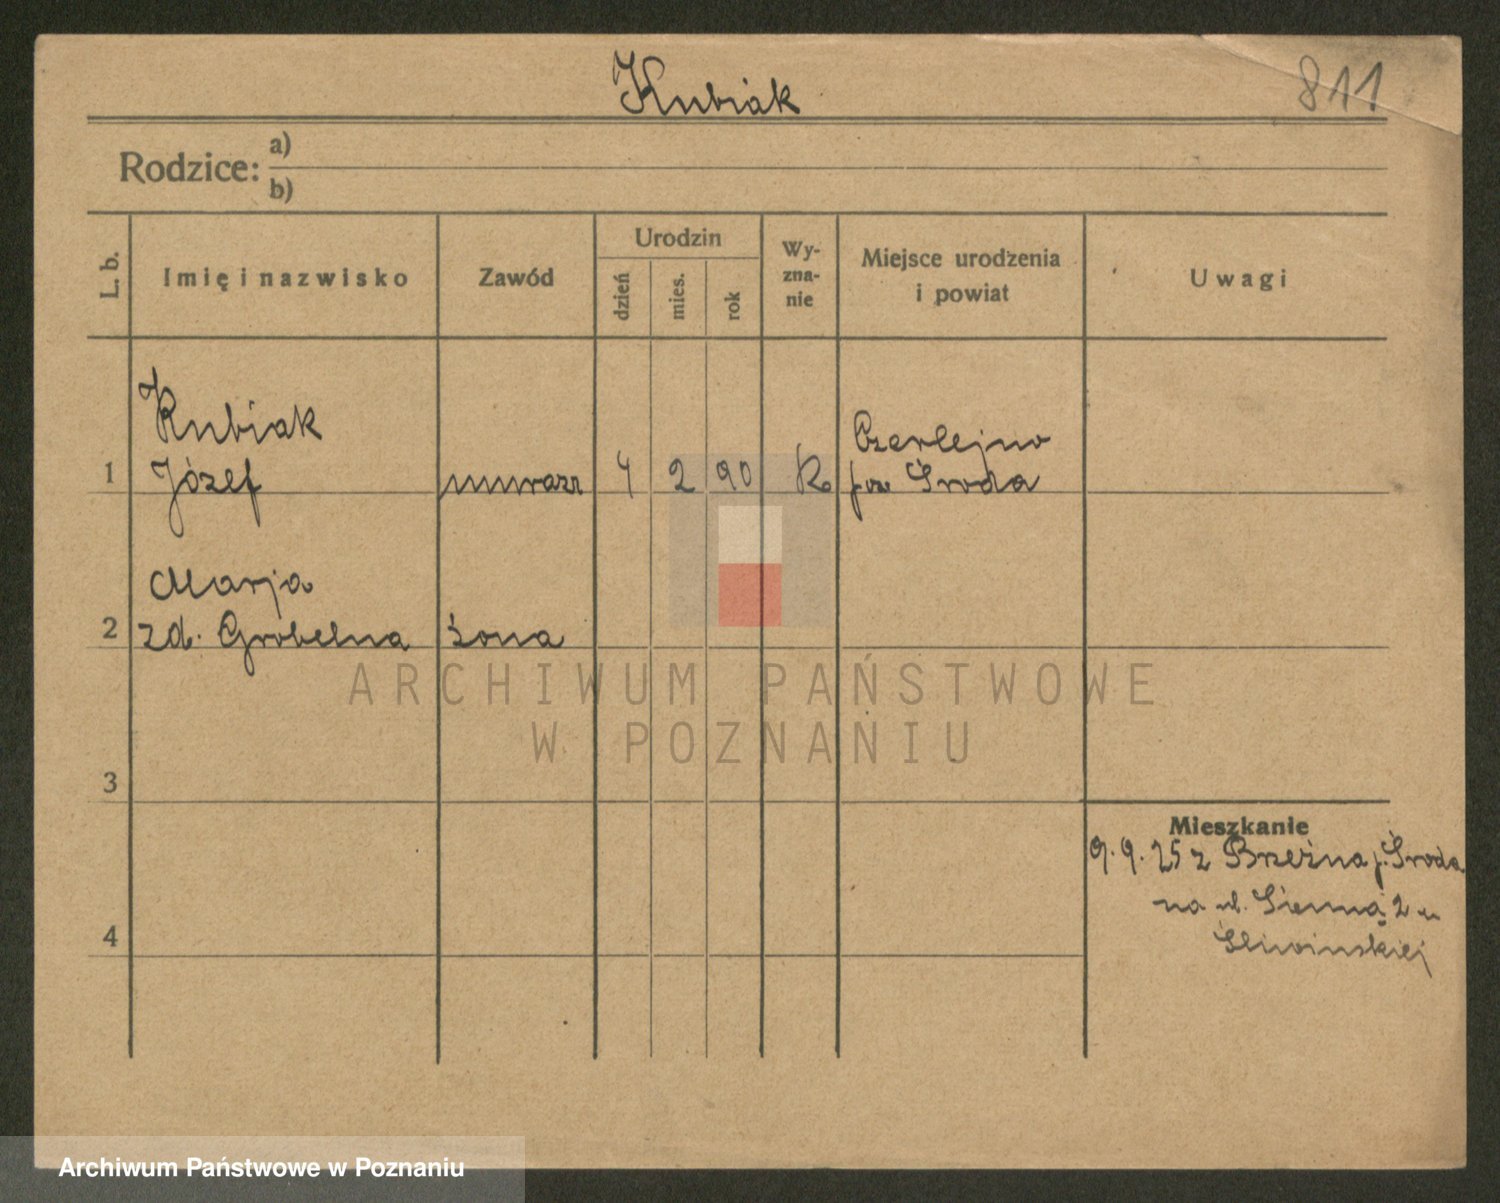 Kubiak
811
Rodzice: a)
b)
L. b.
Imię i nazwisko
Zawód
Urodzin
dzień
mies.
rok
Wy-
zna-
nie
Miejsce urodzenia
i powiat
Uwagi
Kubiak
1 Józef murarz 4 2 90 K
Czerlejno
pow Środa
Marja
2 zd. Grobelna żona
3
4
Mieszkanie
9.9.25 z Brzeźna p. Środa
na ul. Sienną 2 u
Śliwinskiej
ARCHIWUM PAŃSTWOWE
W POZNANIU
Archiwum Państwowe w Poznaniu